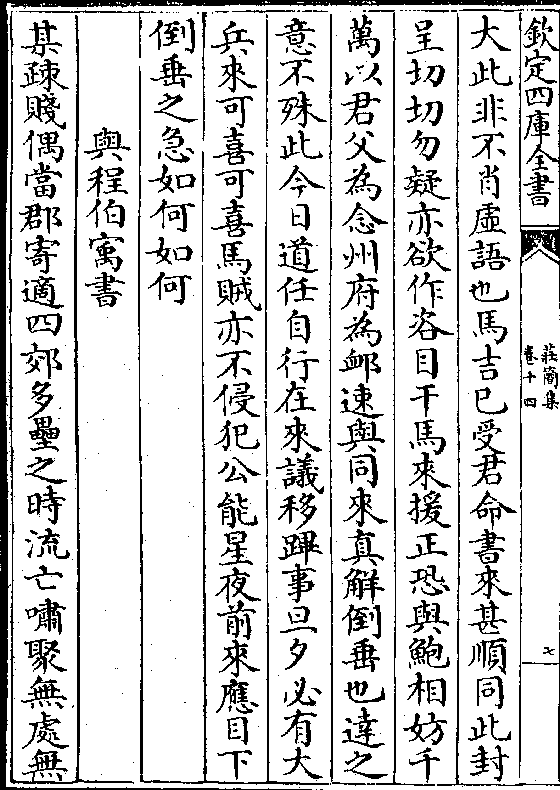 欽定四庫全書
莊簡集
卷十四
七
大此非不肖虛語也馬吉已受君命書來甚順同此封
呈切切勿疑亦欲作咨目干馬來援正恐與鮑相妨千
萬以君父為念州府為卹速與同來真解倒垂也達之
意不殊此今日道任自行在來議移蹕事旦夕必有大
兵來可喜可喜馬賊亦不侵犯公能星夜前來應目下
倒垂之急如何如何
與程伯㝢書
某疎賤偶當郡寄適四郊多壘之時流亡嘯聚無處無